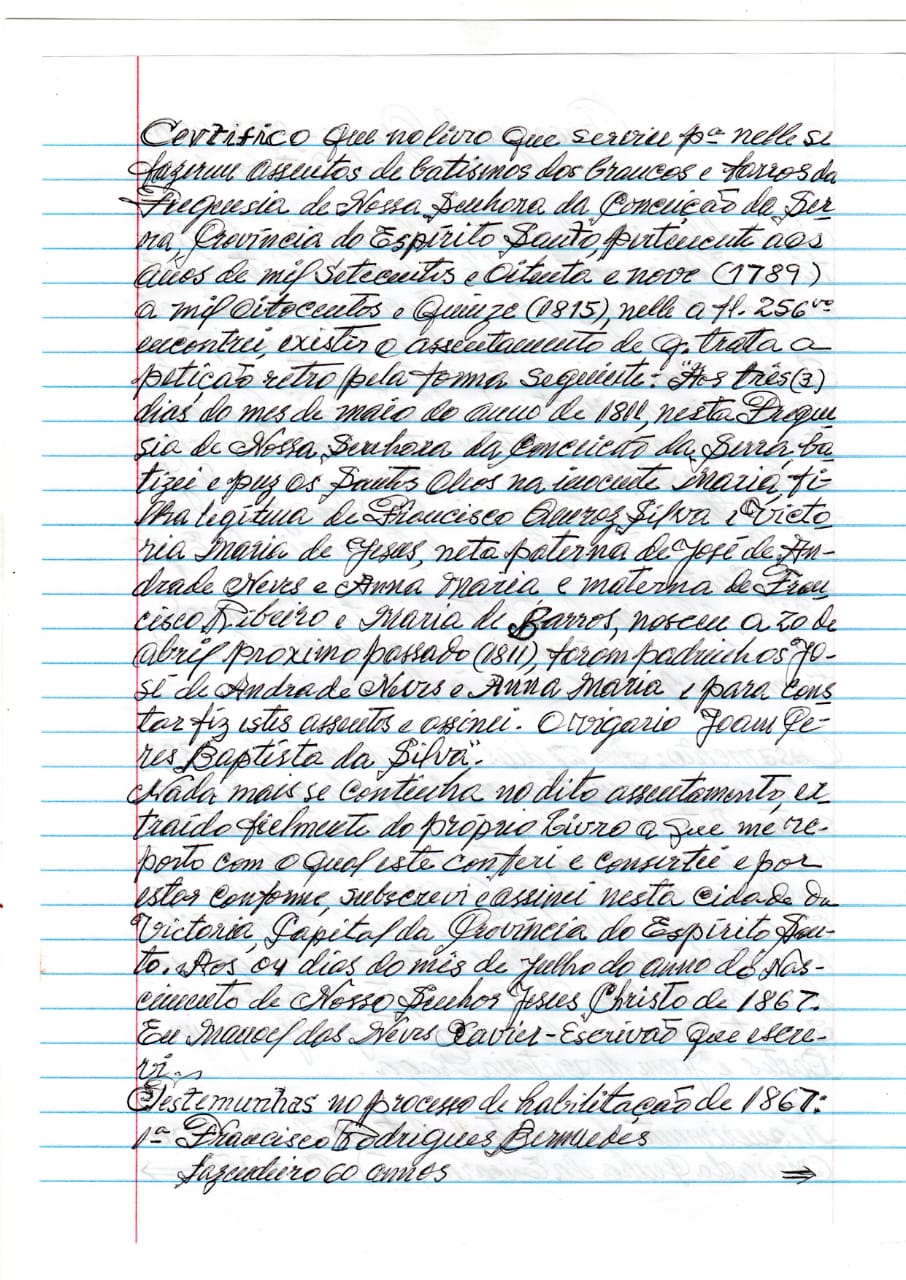 Certifico que no livro que serviu pª nelle se
fazerem assentos de batismos dos brancos e forros da
Freguesia de Nossa Senhora da Conceição da Ser
ra, Província do Espírito Santo, pertencente aos
anos de mil setecentos e oitenta e nove (1789)
a mil oitocentos e Quinze (1815), nelle a fl. 256vº
encontrei, existir o assentamento de q. trata a
petição retro pela forma seguinte: "Aos três (3)
dias do mes de maio do anno de 1811, nesta Fregue
sia de Nossa Senhora da Conceição da Serra, ba
tizei e puz os Santos Olhos na inocente Maria, fi-
lha legítima de Francisco Queroz Silva e Victo
ria Maria de Jesus, neta paterna de José de An-
drade Neves e Anna Maria e materna de Fran
cisco Ribeiro e Maria de Barros, nasceu a 20 de
abril proximo passado (1811), foram padrinhos Jo-
sé de Andrade Neves e Anna Maria e para cons
tar fiz estes assentos e assinei. O vigario "Joam Pe-
res Baptista da Silva".
Nada mais se continha no dito assentamento, ex-
traído fielmente do próprio Livro a que me re-
porto com o qual este conferi e consertei e por
estar conforme, subscrevi e assinei nesta cidade da
Victoria, Capital da Província do Espírito San-
to. Aos 04 dias do mês de Julho do anno do Nas-
cimento de Nosso Senhor Jesus Christo de 1867.
Eu Manoel das Neves Xavier - Escrivão que escre-
vi.
Testemunhas no processo de habilitação de 1867:
1ª Francisco Rodrigues Bermudes
fazendeiro 60 annos ⇒